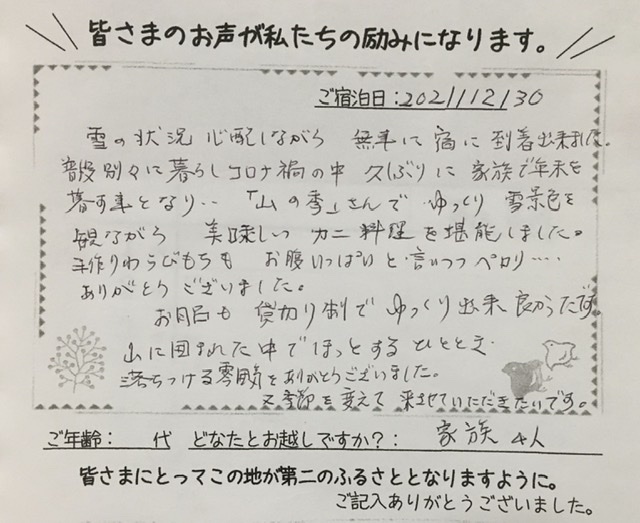 皆さまのお声が私たちの励みになります。
ご宿泊日:2021/12/30
雪の状況 心配しながら 無事に宿に到着出来ました。
普段別々に暮らしコロナ禍の中 久しぶりに 家族で年末を
暮す事となり‥「山の季」さんで ゆっくり 雪景色を
観ながら 美味しい カニ料理を堪能しました。
手作りわらびもちも お腹いっぱいと言いつつペロリ‥‥
ありがとうございました。
お風呂も 貸切り制で ゆっくり出来 良かったです
山に囲まれた中でほっとするひととき・
落ちつける雰囲気をありがとうございました。
又季節を変えて 来させていただきたいです。
ご年齢: 代 どなたとお越しですか?: 家族 4人
皆さまにとってこの地が第二のふるさととなりますように。
ご記入ありがとうございました。